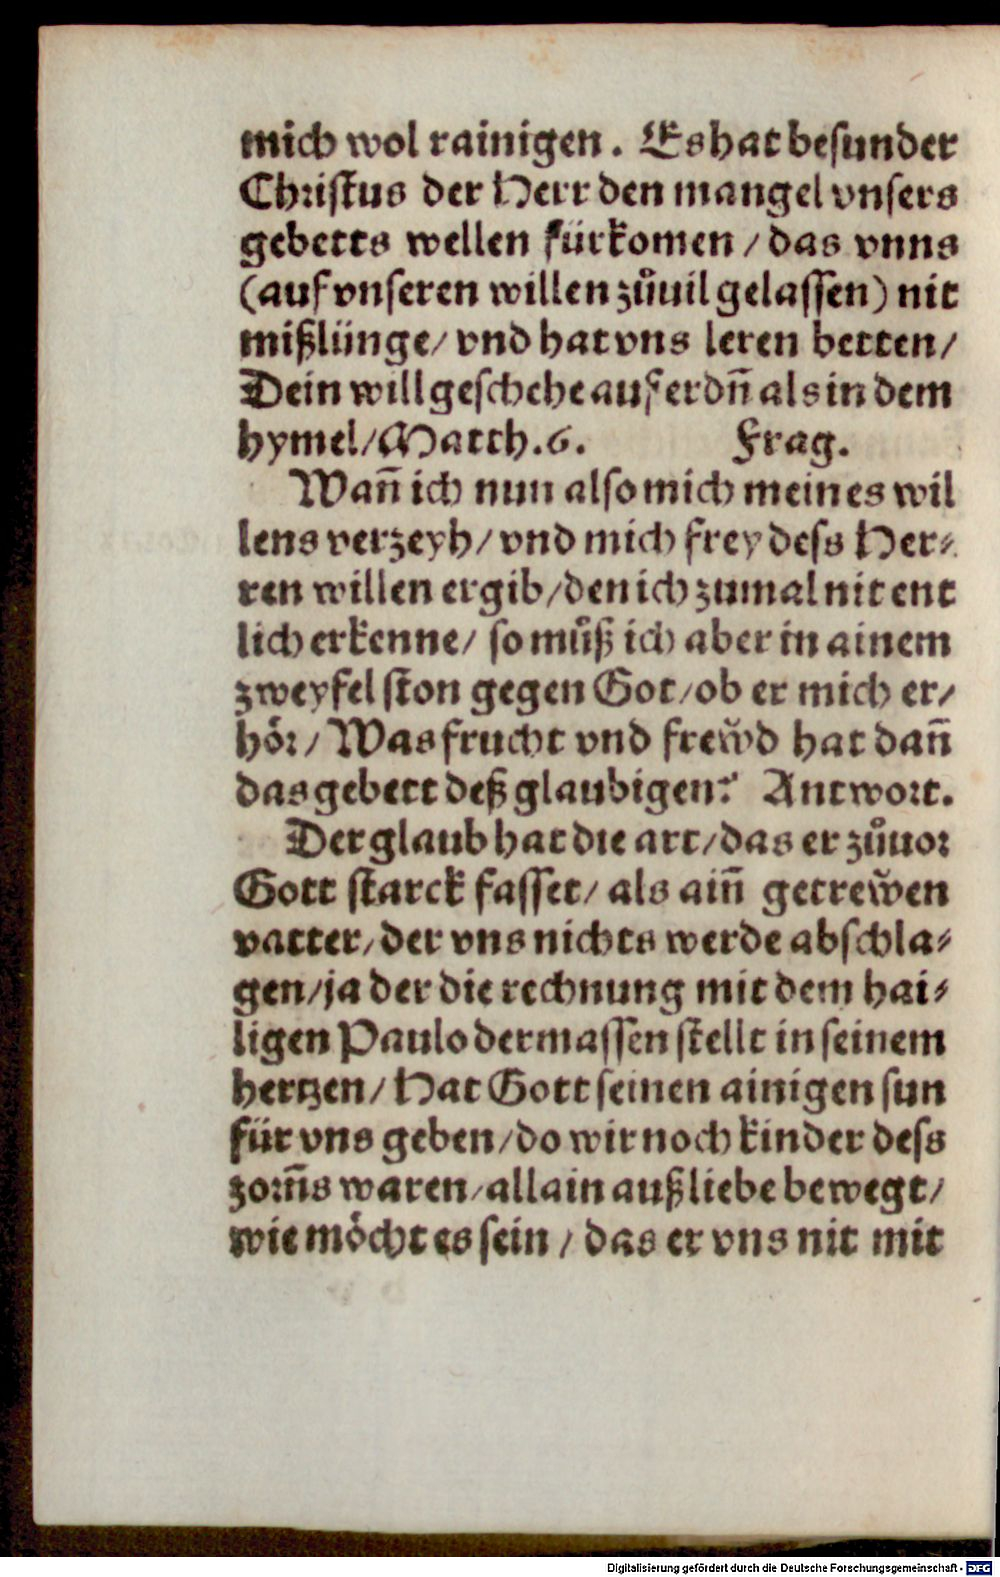 mich wol rainigen. Es hat besunder
Christus der Herr den mangel vnsers
gebetts wellen fürkomen / das vnns
(auf vnseren willen zůuil gelassen) nit
mißlünge / vnd hat vns leren betten /
Dein will geschehe auf erdn̄ als in dem
hymel / Matth. 6. Frag.
Wan̄ ich nun also mich meines wil
lens verzeyh / vnd mich frey dess Her⸗
ren willen ergib / den ich zumal nit ent
lich erkenne / so můß ich aber in ainem
zweyfel ston gegen Got / ob er mich er /
hör / Was frucht vnd frew̌d hat dan̄
das gebett deß glaubigen? Antwort.
Der glaub hat die art / das er zůuor
Gott starck fasset / als ain̄ getrew̌en
vatter / der vns nichts werde abschla⸗
gen / ja der die rechnung mit dem hai⸗
ligen Paulo dermassen stellt in seinem
hertzen / Hat Gott seinen ainigen sun
für vns geben / do wir noch kinder dess
zorm̄s waren / allain auß liebe bewegt /
wie möcht es sein / das er vns nit mit
Digitalisierung gefördert durch die Deutsche Forschungsgemeinschaft - DFG